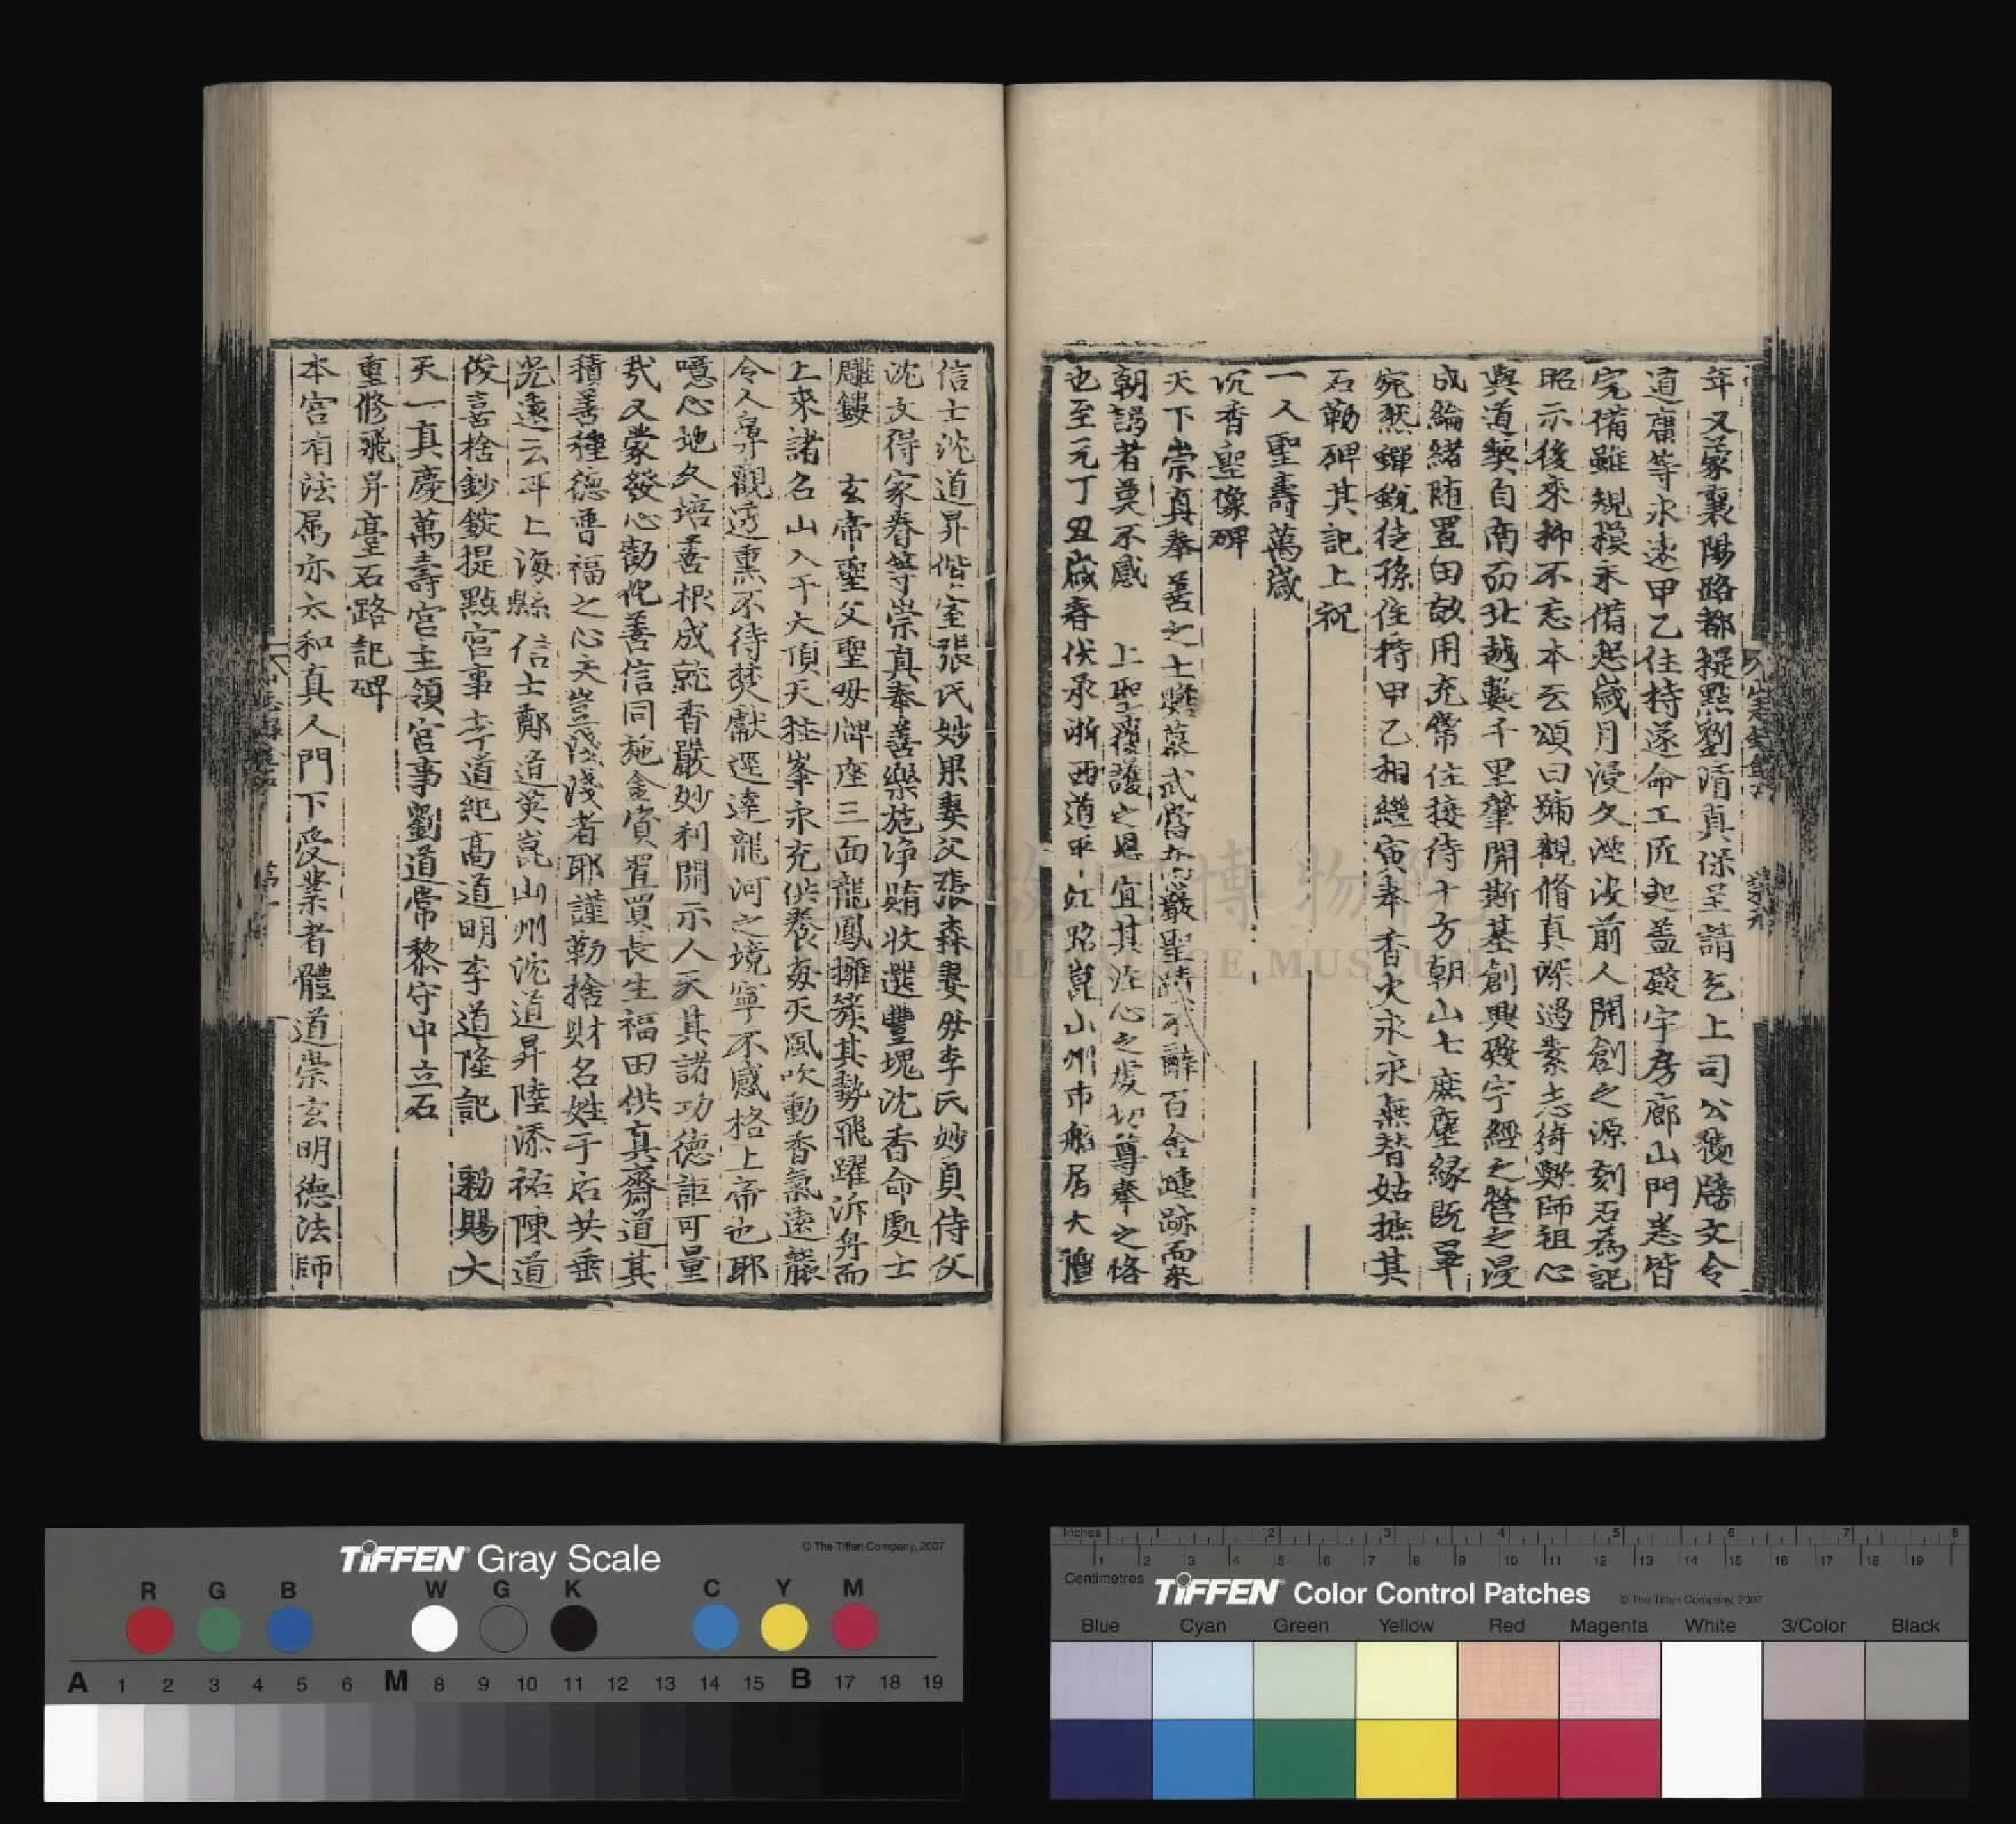 年又蒙襄陽路都提點劉清真保呈請乞上司公發牓文令
道庸等永遠甲乙住持遂命工匠起盖殿宇房廊山門悉皆
完備雖規模未備恐歲月浸久湮没前人開創之源刻石為記
昭示後來抑不忘本云頌曰
觀脩真深過素志猗歟師祖心
與道契自南而北越數千里肇開斯基創興殿宇經之營之浸
成綸緒随置田畝用充常住接待十方朝山七庶塵緣既畢
宛然蟬蛻徒孫住持甲乙相繼寅奉香火永永無替姑摭其
石勒碑其記上祝
一人聖壽萬歲
沉香聖像碑
天下崇真奉善之士
慕武當
嚴聖蹟不辭百舍
跡而來
朝謁者莫不感　上聖
護之恩宜其
心之處
尊奉之格
也至元丁丑歲春伏承浙西道平江路崑山州市
居大
信士沈道昇偕室張氏妙果妻父張森妻母李氏妙貞侍父
沈文得家眷等崇真奉善樂施净賄收選豐塊沈香命處士
雕鏤　玄帝聖父聖母牌座三面龍鳳擁
其勢飛躍泝舟而
上來諸名山入于大頂天柱峯永充供養每天風吹動香氣遠
令人鼻觀透熏不待焚獻逕達龍河之境寧不感格上帝也耶
噫心地久培善根成就香嚴妙利開示人天其諸功德詎可量
哉又蒙發心勸化善信同施金資置買長生福田供真齋道其
積善種德覃福之心夫豈淺淺者耶謹勒捨財名姓于石共垂
光遠云耳上海縣信士鄭道英崑山州沈道昇陸添祐陳道
俊喜捨鈔錠提點宮事李道純高道明李道隆記　勅賜大
天一真慶萬壽宮主領宮事劉道常黎守中立石
重脩飛昇臺石路記碑
本宮有法属亦太和真人門下受業者體道崇玄明德法師
TIFFEN Gray Scale
© The Tiffen Company, 2007
R G B W G K C Y M
A 1 2 3 4 5 6 M 8 9 10 11 12 13 14 15 B 17 18 19
Inches 1 2 3 4 5 6 7 8
1 2 3 4 5 6 7 8 9 10 11 12 13 14 15 16 17 18 19
Centimetres
TIFFEN Color Control Patches
© The Tiffen Company, 2007
Blue Cyan Green Yellow Red Magenta White 3/Color Black